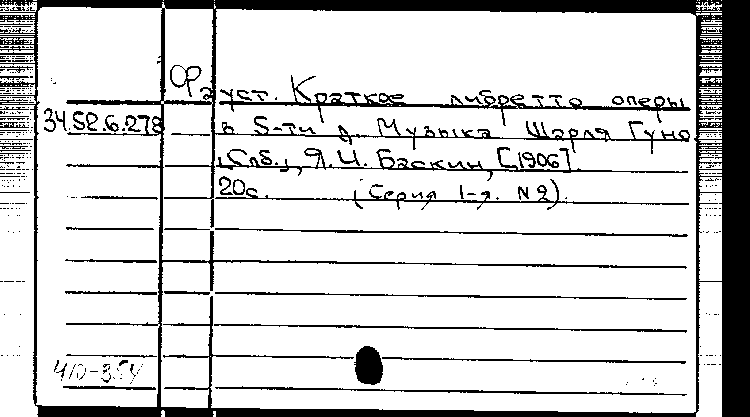 Фауст. Краткое либретто оперы
34.52.6.278 в 5-ти д. Музыка Шарля Гуно.
[Спб.], Я. И. Баскин, [1906].
20с. (Серия 1-я. N 2).